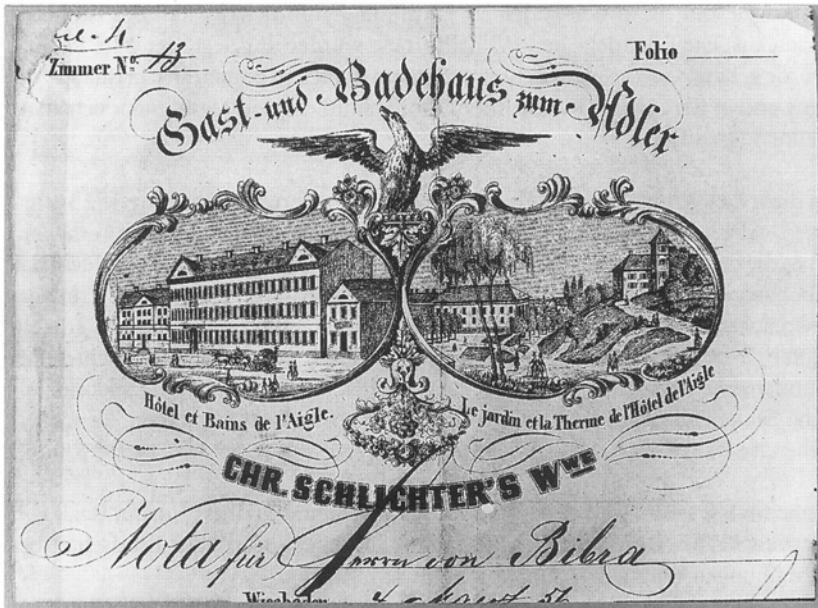 Zimmer Nº. 13
Folio
Gast- und Badehaus zum Adler
Hôtel et Bains de l'Aigle.
Le jardin et la Therme de l'Hôtel de l'Aigle
CHR. SCHLICHTER'S Wwe
Nota für Herrn von Bibra
Wiesbaden